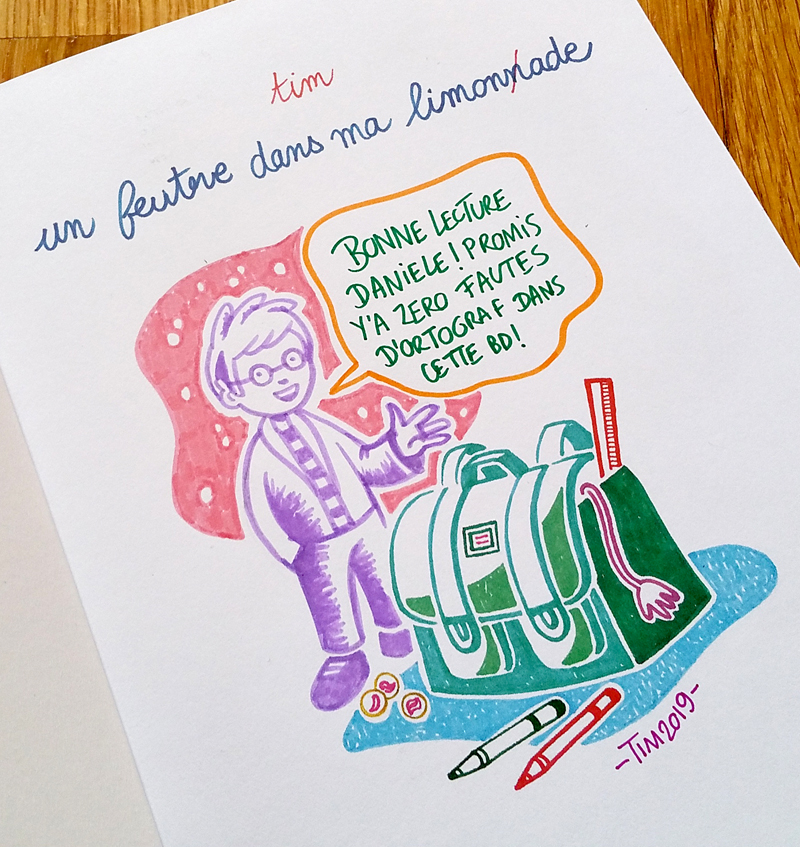 tim
un feutre dans ma limonnade
BONNE LECTURE
DANIELE ! PROMIS
Y'A ZERO FAUTES
D'ORTOGRAF DANS
CETTE BD !
-TIM 2019-